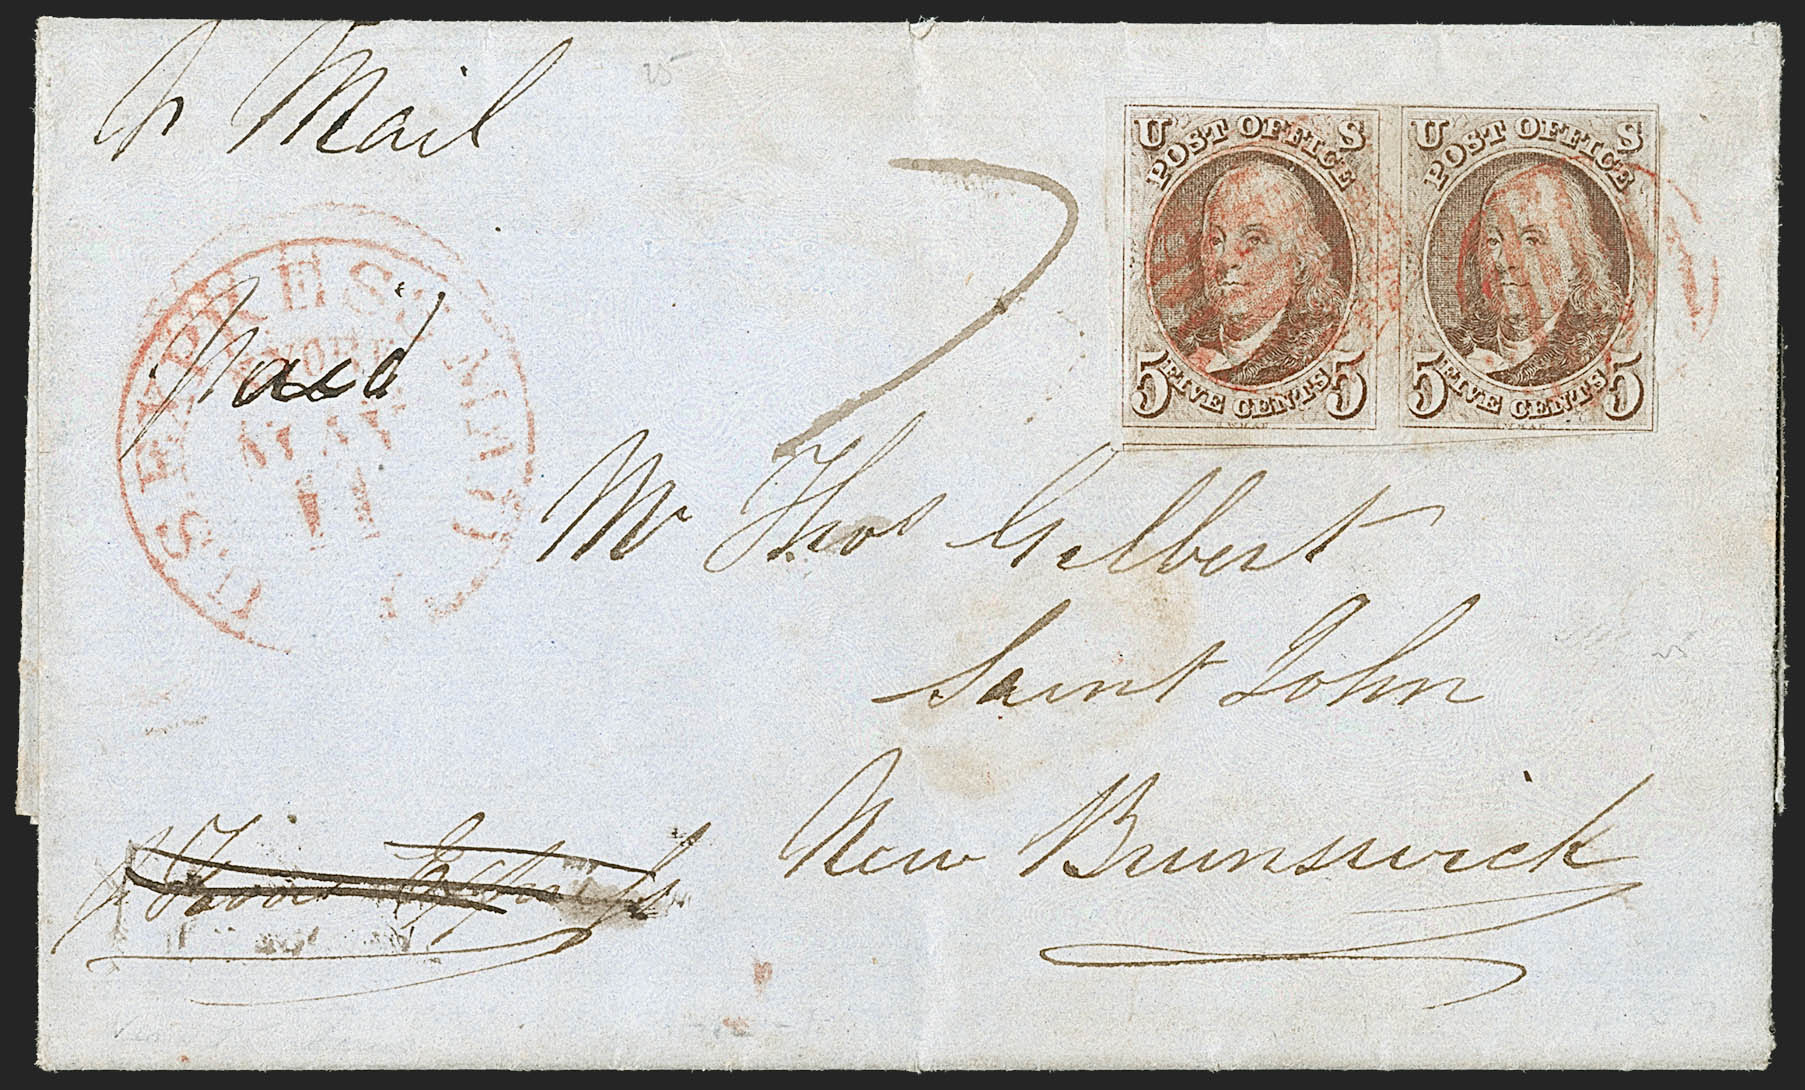 p Mail
25
U S
POST OFFICE
5 FIVE CENTS 5
U S
POST OFFICE
5 FIVE CENTS 5
U.S. EXPRESS MAIL
N.YORK
MAY
11
Paid
7
Mr Thos Gilbert
Saint John
New Brunswick